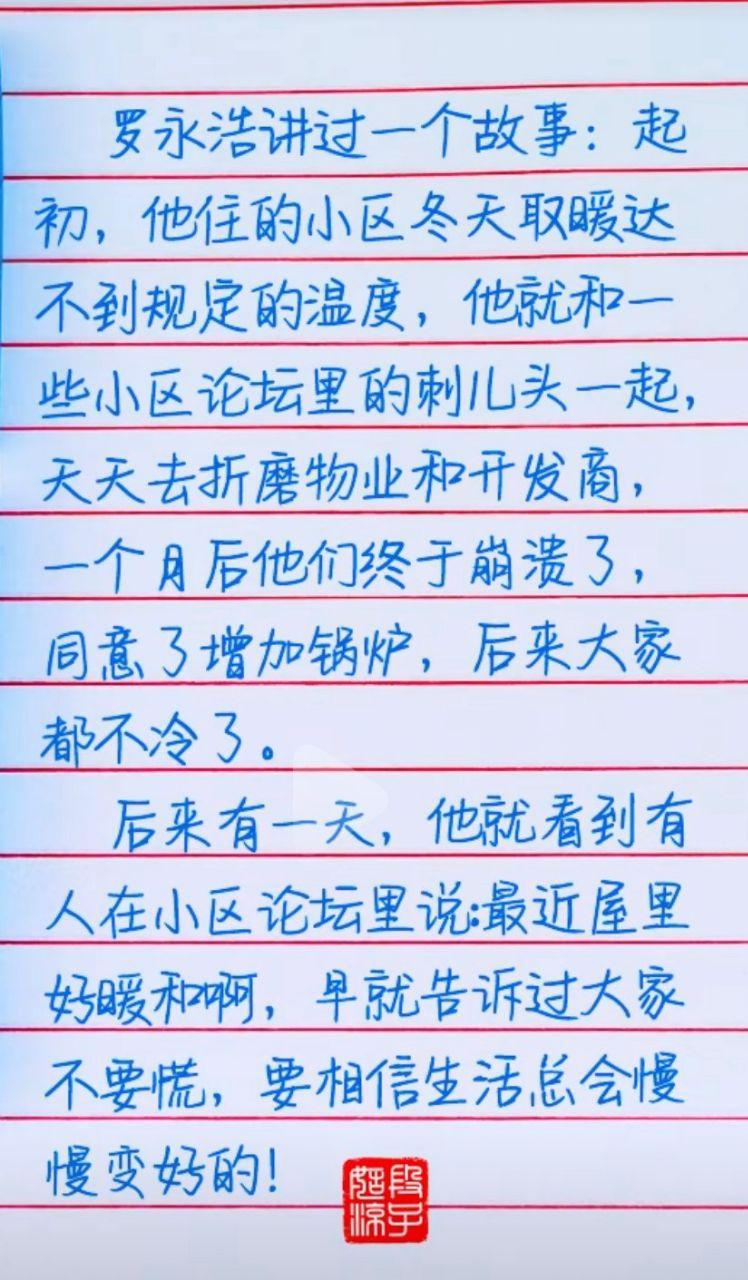 罗永浩讲过一个故事：起
初，他住的小区冬天取暖达
不到规定的温度，他就和一
些小区论坛里的刺儿头一起，
天天去折磨物业和开发商，
一个月后他们终于崩溃了，
同意了增加锅炉，后来大家
都不冷了。
后来有一天，他就看到有
人在小区论坛里说：最近屋里
好暖和啊，早就告诉过大家
不要慌，要相信生活总会慢
慢变好的！
段子
凉